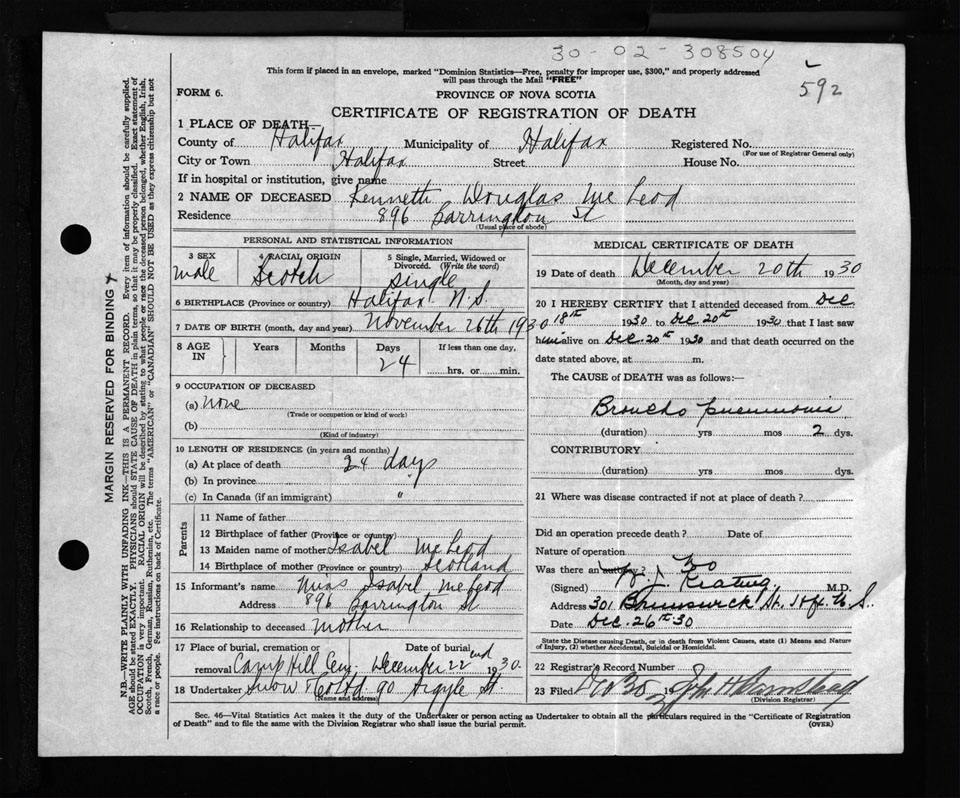 30-02-308504
This form if placed in an envelope, marked "Dominion Statistics—Free, penalty for improper use, $300," and properly addressed
will pass through the Mail "FREE"
592
FORM 6.
PROVINCE OF NOVA SCOTIA
CERTIFICATE OF REGISTRATION OF DEATH
1 PLACE OF DEATH—
County of Halifax Municipality of Halifax Registered No.
(For use of Registrar General only)
City or Town Halifax Street House No.
If in hospital or institution, give name
2 NAME OF DECEASED Kenneth Douglas McLeod
Residence 896 Barrington St
(Usual place of abode)
MARGIN RESERVED FOR BINDING
N.B.—WRITE PLAINLY WITH UNFADING INK—THIS IS A PERMANENT RECORD. Every item of information should be carefully supplied.
AGE should be stated EXACTLY. PHYSICIANS should STATE CAUSE OF DEATH in plain terms, so that it may be properly classified. Exact statement of
OCCUPATION is very important. RACIAL ORIGIN will be described by stating to what people or race the deceased person belonged, whether English, Irish,
Scotch, French, German, Russian, Ruthenian, etc. The terms "AMERICAN" or "CANADIAN" SHOULD NOT BE USED as they express citizenship but not
a race or people. See instructions on back of Certificate.
PERSONAL AND STATISTICAL INFORMATION
3 SEX
male
4 RACIAL ORIGIN
Scotch
5 Single, Married, Widowed or
Divorced. (Write the word)
single
6 BIRTHPLACE (Province or country) Halifax N.S.
7 DATE OF BIRTH (month, day and year) November 26th 1930
8 AGE
IN
Years
Months
Days
24
If less than one day,
hrs. or min.
9 OCCUPATION OF DECEASED
(a) none
(Trade or occupation or kind of work)
(b)
(Kind of industry)
10 LENGTH OF RESIDENCE (in years and months)
(a) At place of death 24 days
(b) In province "
(c) In Canada (if an immigrant) "
Parents
11 Name of father
12 Birthplace of father (Province or country)
13 Maiden name of mother Isabel McLeod
14 Birthplace of mother (Province or country) Scotland
15 Informant's name Miss Isabel McLeod
Address 896 Barrington St
16 Relationship to deceased mother
17 Place of burial, cremation or Date of burial
removal Camp Hill Cem. December 22nd 1930.
18 Undertaker Snow & Co Ltd 90 Argyle St.
(Name and address)
MEDICAL CERTIFICATE OF DEATH
19 Date of death December 20th 1930
(Month, day and year)
20 I HEREBY CERTIFY that I attended deceased from Dec.
18th 1930 to Dec 20th 1930 that I last saw
him alive on Dec. 20th 1930 and that death occurred on the
date stated above, at m.
The CAUSE of DEATH was as follows:—
Broncho pneumonia
(duration) yrs mos 2 dys.
CONTRIBUTORY
(duration) yrs mos dys.
21 Where was disease contracted if not at place of death?
Did an operation precede death? Date of
Nature of operation
Was there an autopsy? No
(Signed) Keating M.D.
Address 301 Brunswick St. Hfx N.S.
Date Dec. 26th 30
State the Disease causing Death, or in death from Violent Causes, state (1) Means and Nature
of Injury, (2) whether Accidental, Suicidal or Homicidal.
22 Registrar's Record Number
23 Filed Dec 30 19
(Division Registrar)
Sec. 46—Vital Statistics Act makes it the duty of the Undertaker or person acting as Undertaker to obtain all the particulars required in the "Certificate of Registration
of Death" and to file the same with the Division Registrar who shall issue the burial permit.
(OVER)